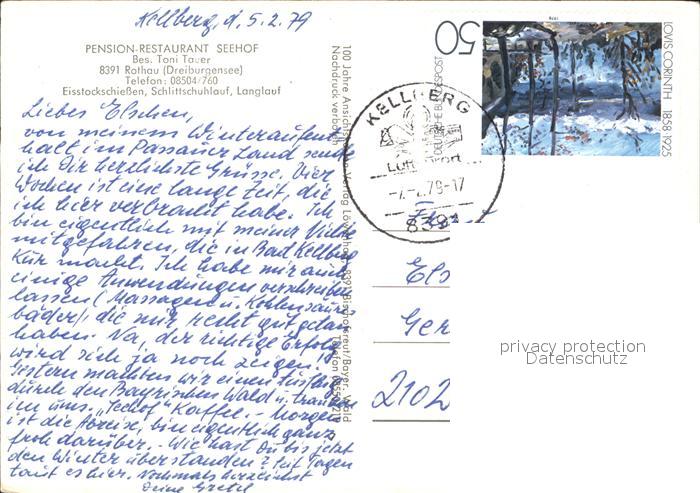 Kellberg, d. 5.2.79
PENSION-RESTAURANT SEEHOF
Bes. Toni Tauer
8391 Rothau (Dreiburgensee)
Telefon: 08504/760
Eisstockschießen, Schlittschuhlauf, Langlauf
Liebes Elschen,
von meinem Winteraufent-
halt im Passauer Land sende
ich Dir herzlichste Grüsse. Vier
Wochen ist eine lange Zeit, die
ich hier verbracht habe. Ich
bin eigentlich mit meiner
mitgefahren, die in Bad Kellberg
Kur macht. Ich habe mir auch
einige Anwendungen verschreiben
lassen (Massagen u. Kohlensäure-
bäder), die mir recht gut getan
haben. Na, der richtige Erfolg
wird sich ja noch zeigen.
Gestern machten wir einen Ausflug
durch den Bayrischen Wald u. tranken
im ums. "Seehof" Kaffee. - Morgen
ist die Abreise, bin eigentlich ganz
froh darüber. - Wie hast Du bis jetzt
den Winter überstanden? Seit Tagen
taut es hier. Nochmals herzlichst
Deine Gretel
100 Jahre Ansichtskarten Verlag
Nachdruck verboten
50
DEUTSCHE BUNDESPOST
LOVIS CORINTH 1858-1925
KELLBERG
Luftkurort
-7.-2.79-17
8391
Els
Ger
2102
privacy protection
Datenschutz